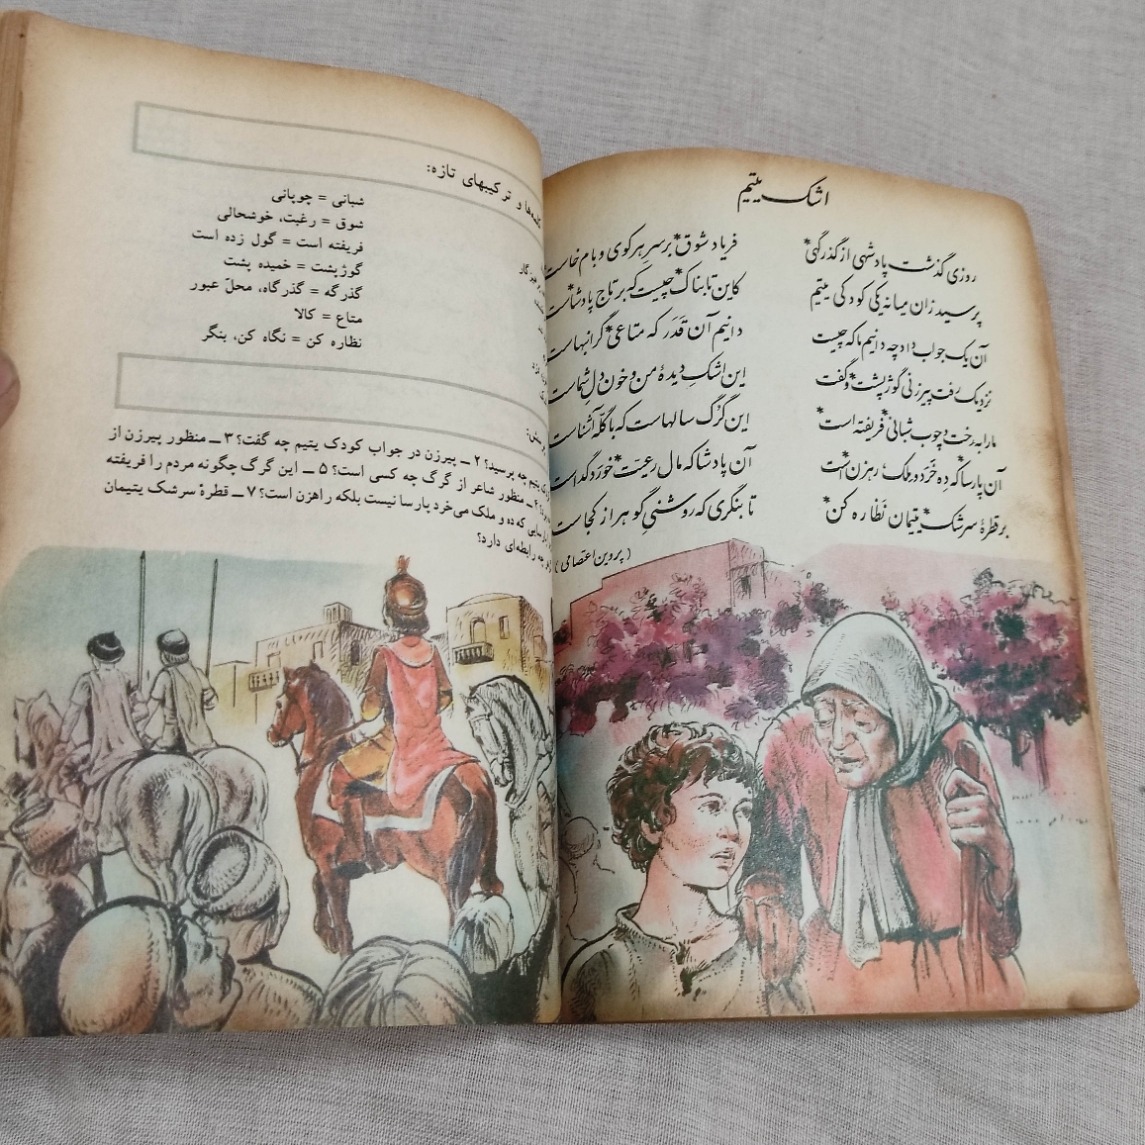 اشک یتیم
روزی گذشت پادشهی از گذرگهی* فریاد شوق* بر سر هر کوی و بام خاست
پرسید زان میانه یکی کودکی یتیم کاین تابناک* چیست که بر تاج پادشاست*
آن یک جواب داد چه دانیم ما که چیست دانیم آن قدر که متاعی* گرانبهاست
نزدیک رفت پیرزنی گوژپشت* و گفت این اشک دیدهٔ من و خون دل شماست
ما را به رخت و چوب شبانی* فریفته است* این گرگ سالهاست که با گله آشناست
آن پارسا* که ده خرد و ملک* رهزن* است آن پادشا که مال رعیت* خورد گداست
بر قطرهٔ سرشک* یتیمان نظاره کن* تا بنگری که روشنی گوهر از کجاست
(پروین اعتصامی)
کلمه‌ها و ترکیبهای تازه:
شبانی = چوپانی
شوق = رغبت، خوشحالی
فریفته است = گول زده است
گوژپشت = خمیده پشت
گذرگه = گذرگاه، محلّ عبور
متاع = کالا
نظاره کن = نگاه کن، بنگر
یتیم چه پرسید؟ ۲ ــ پیرزن در جواب کودک یتیم چه گفت؟ ۳ ــ منظور پیرزن از
۴ ــ منظور شاعر از گرگ چه کسی است؟ ۵ ــ این گرگ چگونه مردم را فریفته
که ده و ملک می‌خرد پارسا نیست بلکه راهزن است؟ ۷ ــ قطرهٔ سرشک یتیمان
چه رابطه‌ای دارد؟